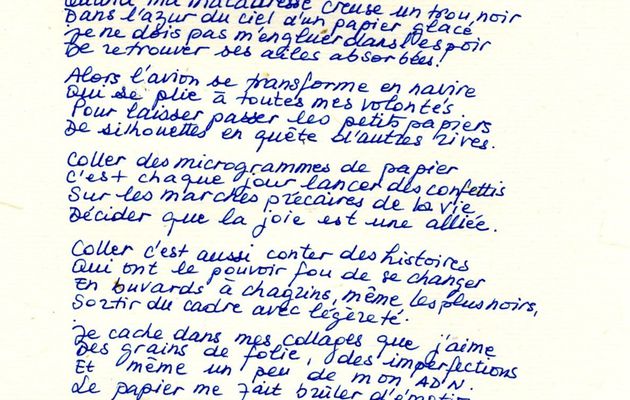 Quand ma maladresse creuse un trou noir
Dans l'azur du ciel d'un papier glacé
Je ne dois pas m'engluer dans l'espoir
De retrouver ses ailes absorbées!
Alors l'avion se transforme en navire
Qui se plie à toutes mes volontés
Pour laisser passer les petits papiers
De silhouettes en quête d'autres rives.
Coller des microgrammes de papier
C'est chaque jour lancer des confettis
Sur les marches précaires de la vie
Décider que la joie est une alliée.
Coller c'est aussi conter des histoires
Qui ont le pouvoir fou de se changer
En buvards à chagrins, même les plus noirs,
Sortir du cadre avec légèreté.
Je cache dans mes collages que j'aime
Des grains de folie, des imperfections
Et même un peu de mon ADN.
Le papier me fait brûler d'émotion